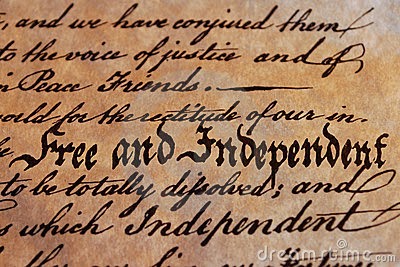 , and we have conjured them
to the voice of justice and of
in Peace Friends.
orld for the rectitude of our in
Free and Independent
to be totally dissolved; and
s which Independent
dreamstime.com